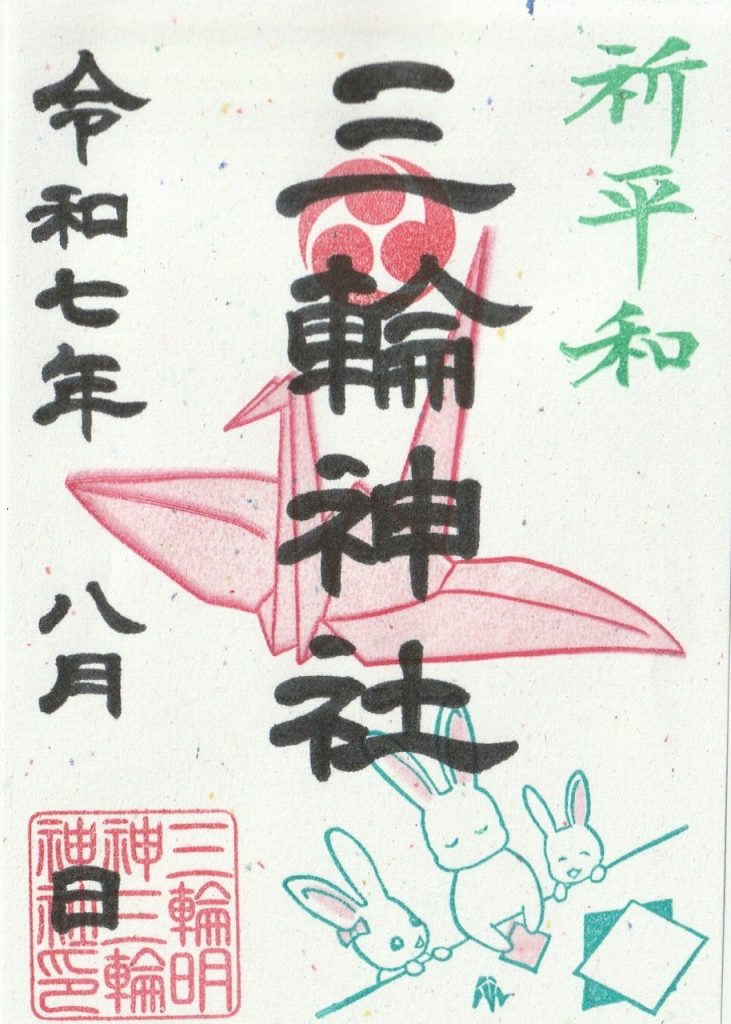 祈平和
三輪神社
令和七年 八月
日
三輪明
神三輪
神社印